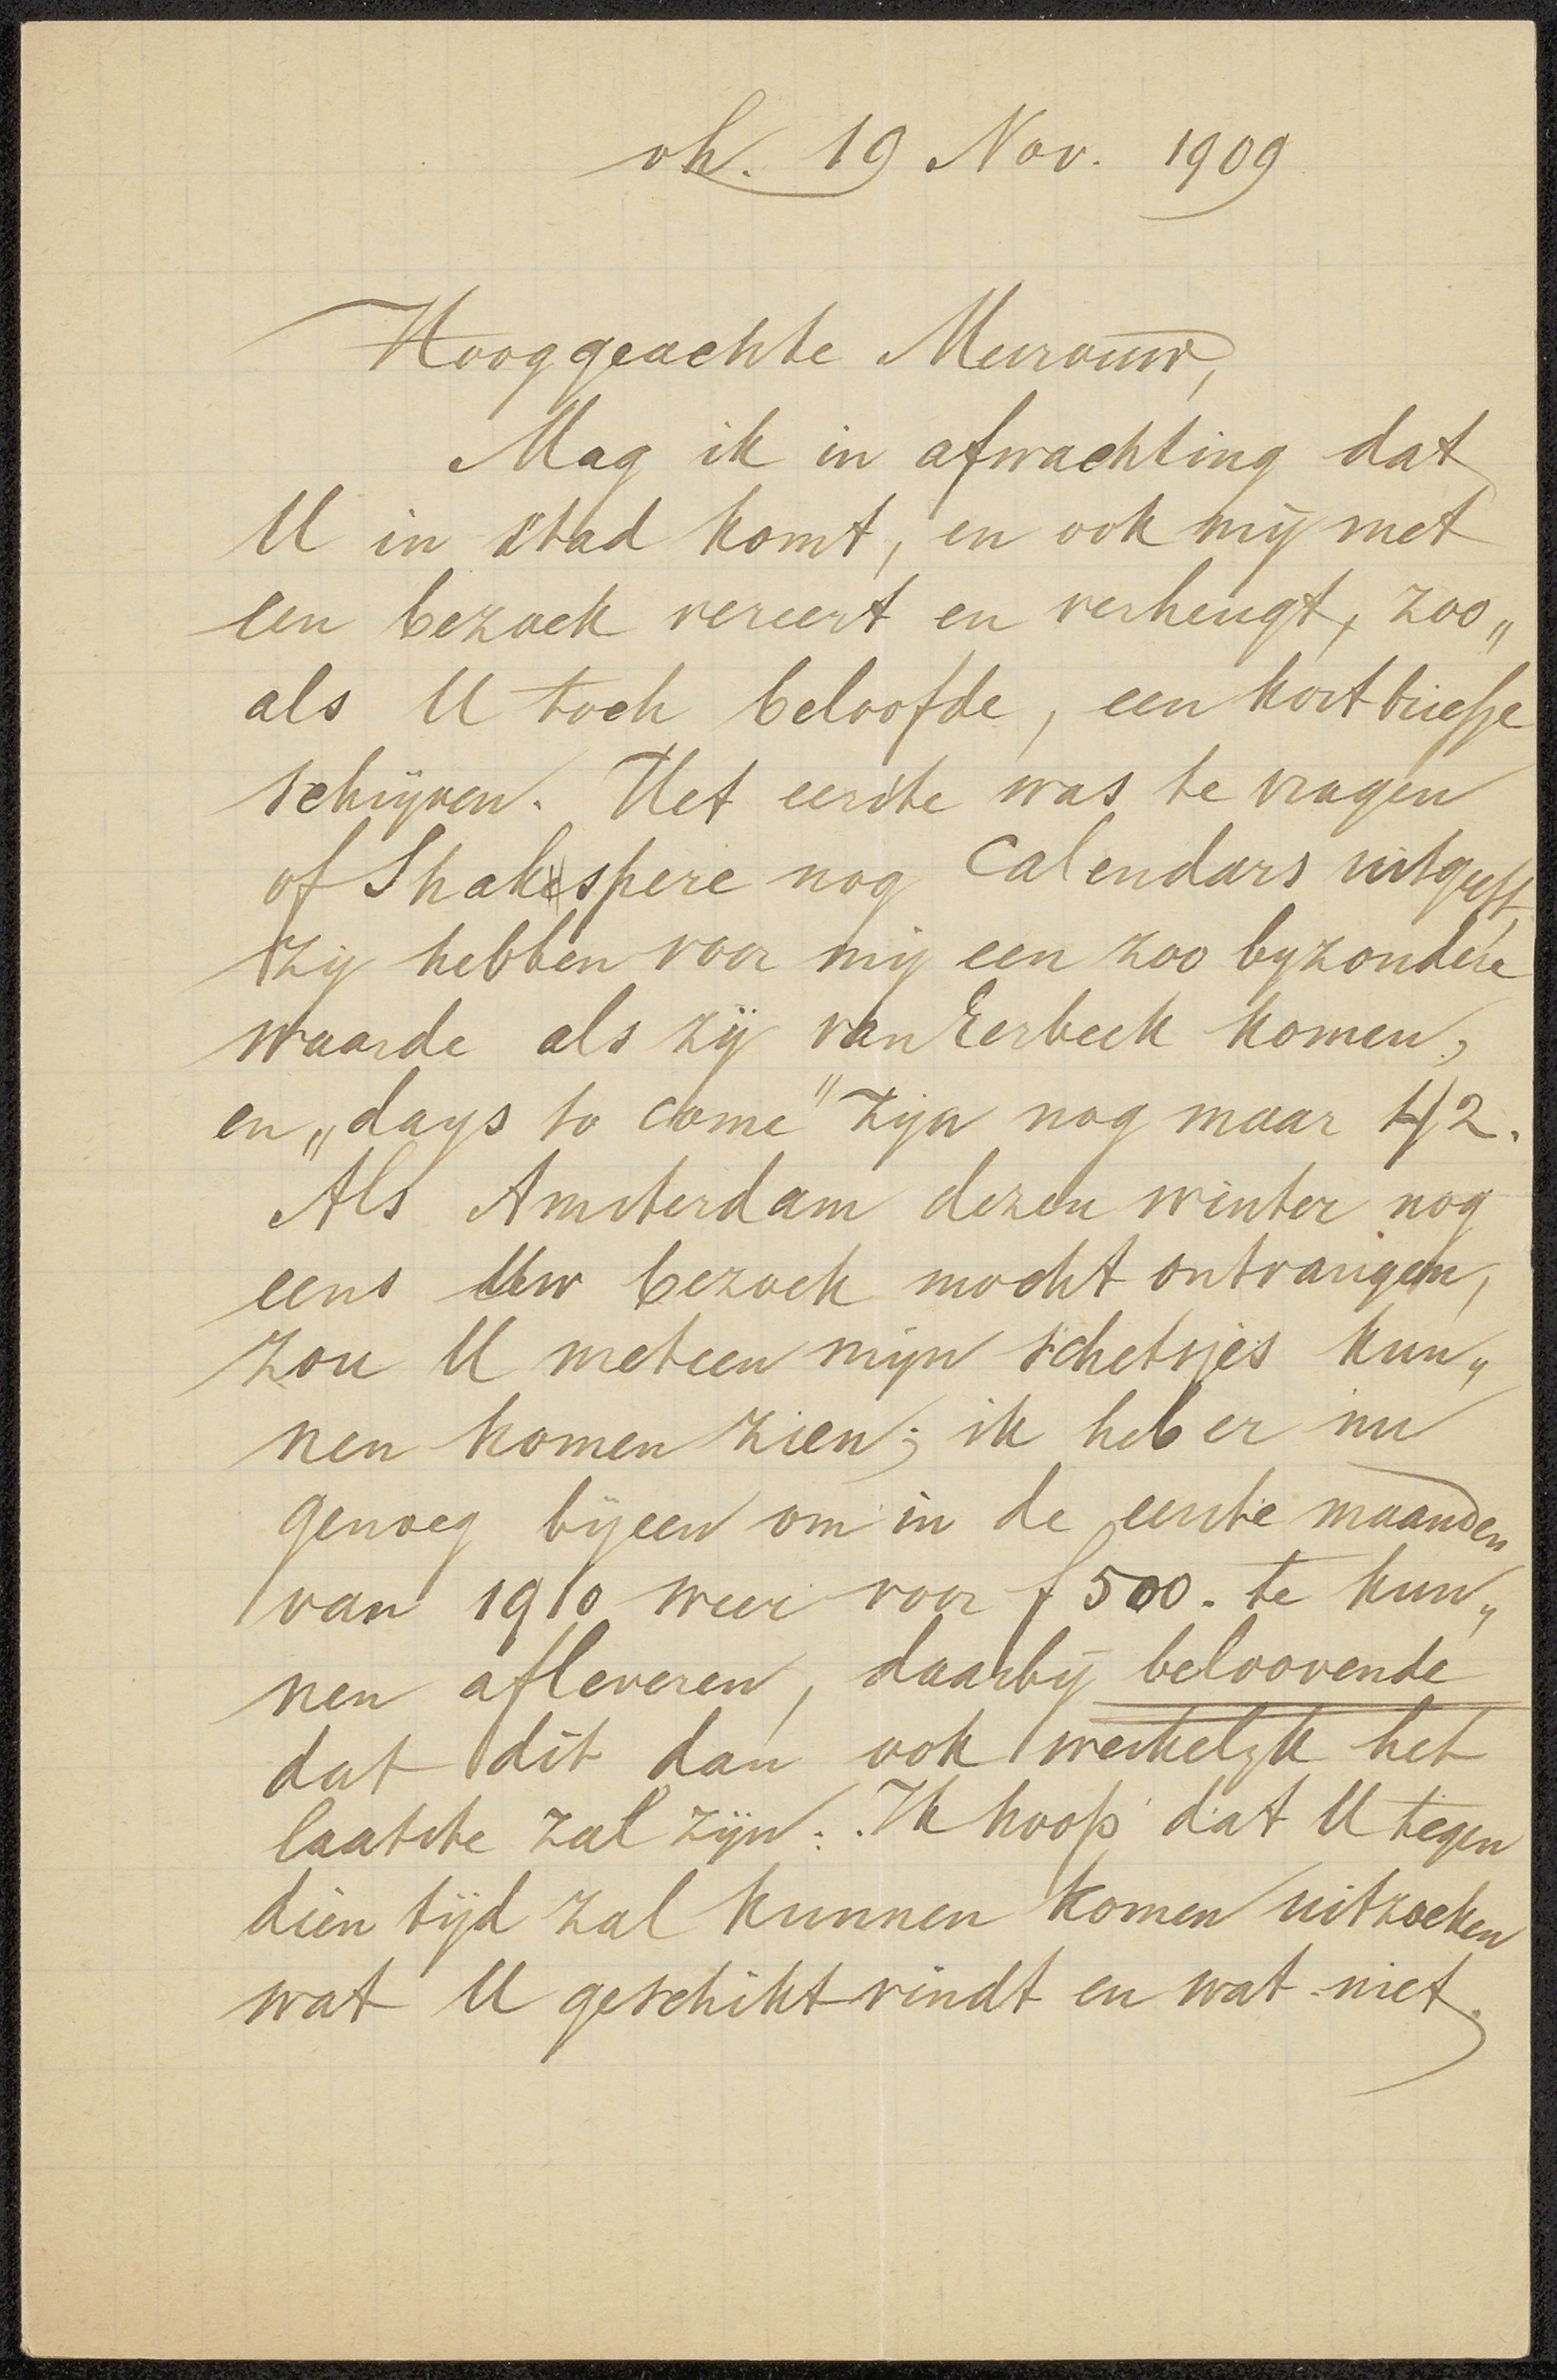 oh. 19 Nov. 1909
Hooggeachte Mevrouw,
Mag ik in afwachting dat
U in stad komt, en ook mij met
een bezoek vereert en verheugt, zoo„
als U toch beloofde, een kort briefje
schrijven. Het eerste was te vragen
of Shakespere nog Calendars uitgeeft,
zij hebben voor mij een zoo byzondere
waarde als zij van Eerbeek komen,
en „days to come" zijn nog maar 42.
Als Amsterdam dezen winter nog
eens Uw bezoek mocht ontvangen,
zou U meteen mijn schetsjes kun„
nen komen zien; ik heb er nu
genoeg bijeen om in de eerste maanden
van 1910 weer voor f 500. te kun„
nen afleveren, daarbij beloovende
dat dit dan ook werkelyk het
laatste zal zijn. Ik hoop dat U tegen
dien tijd zal kunnen komen uitzoeken
wat U geschikt vindt en wat niet.